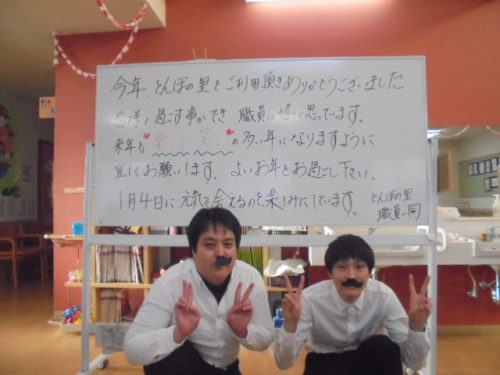 今年、とんぼの里をご利用頂きありがとうございました
皆様と過す事ができ 職員は嬉しく思っています。
来年も 楽しく 笑いの多い年になりますように
宜しくお願いします。よいお年をお過し下さい。
1月4日に元気で会えるのを楽しみにしています。
とんぼの里
職員一同